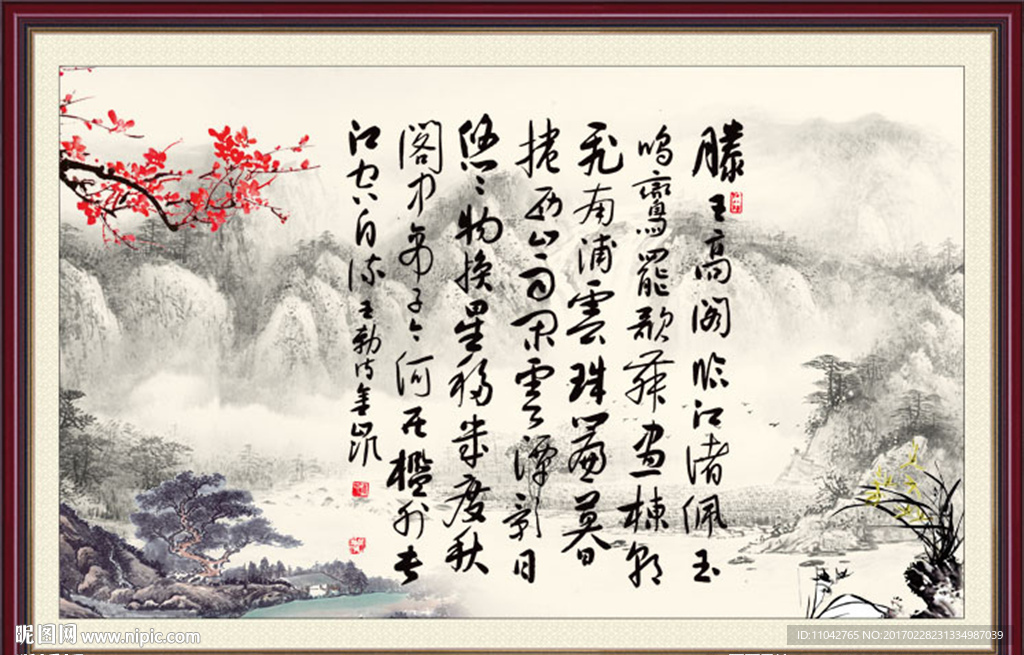 滕王高阁临江渚佩玉
鸣鸾罢歌舞画栋朝
飞南浦雲珠簾暮
捲西山雨闲雲潭影日
悠悠物换星移几度秋
阁中帝子今何在槛外长
江空自流王勃诗
昵图网 www.nipic.com
ID:11042765 NO:20170228231334987039